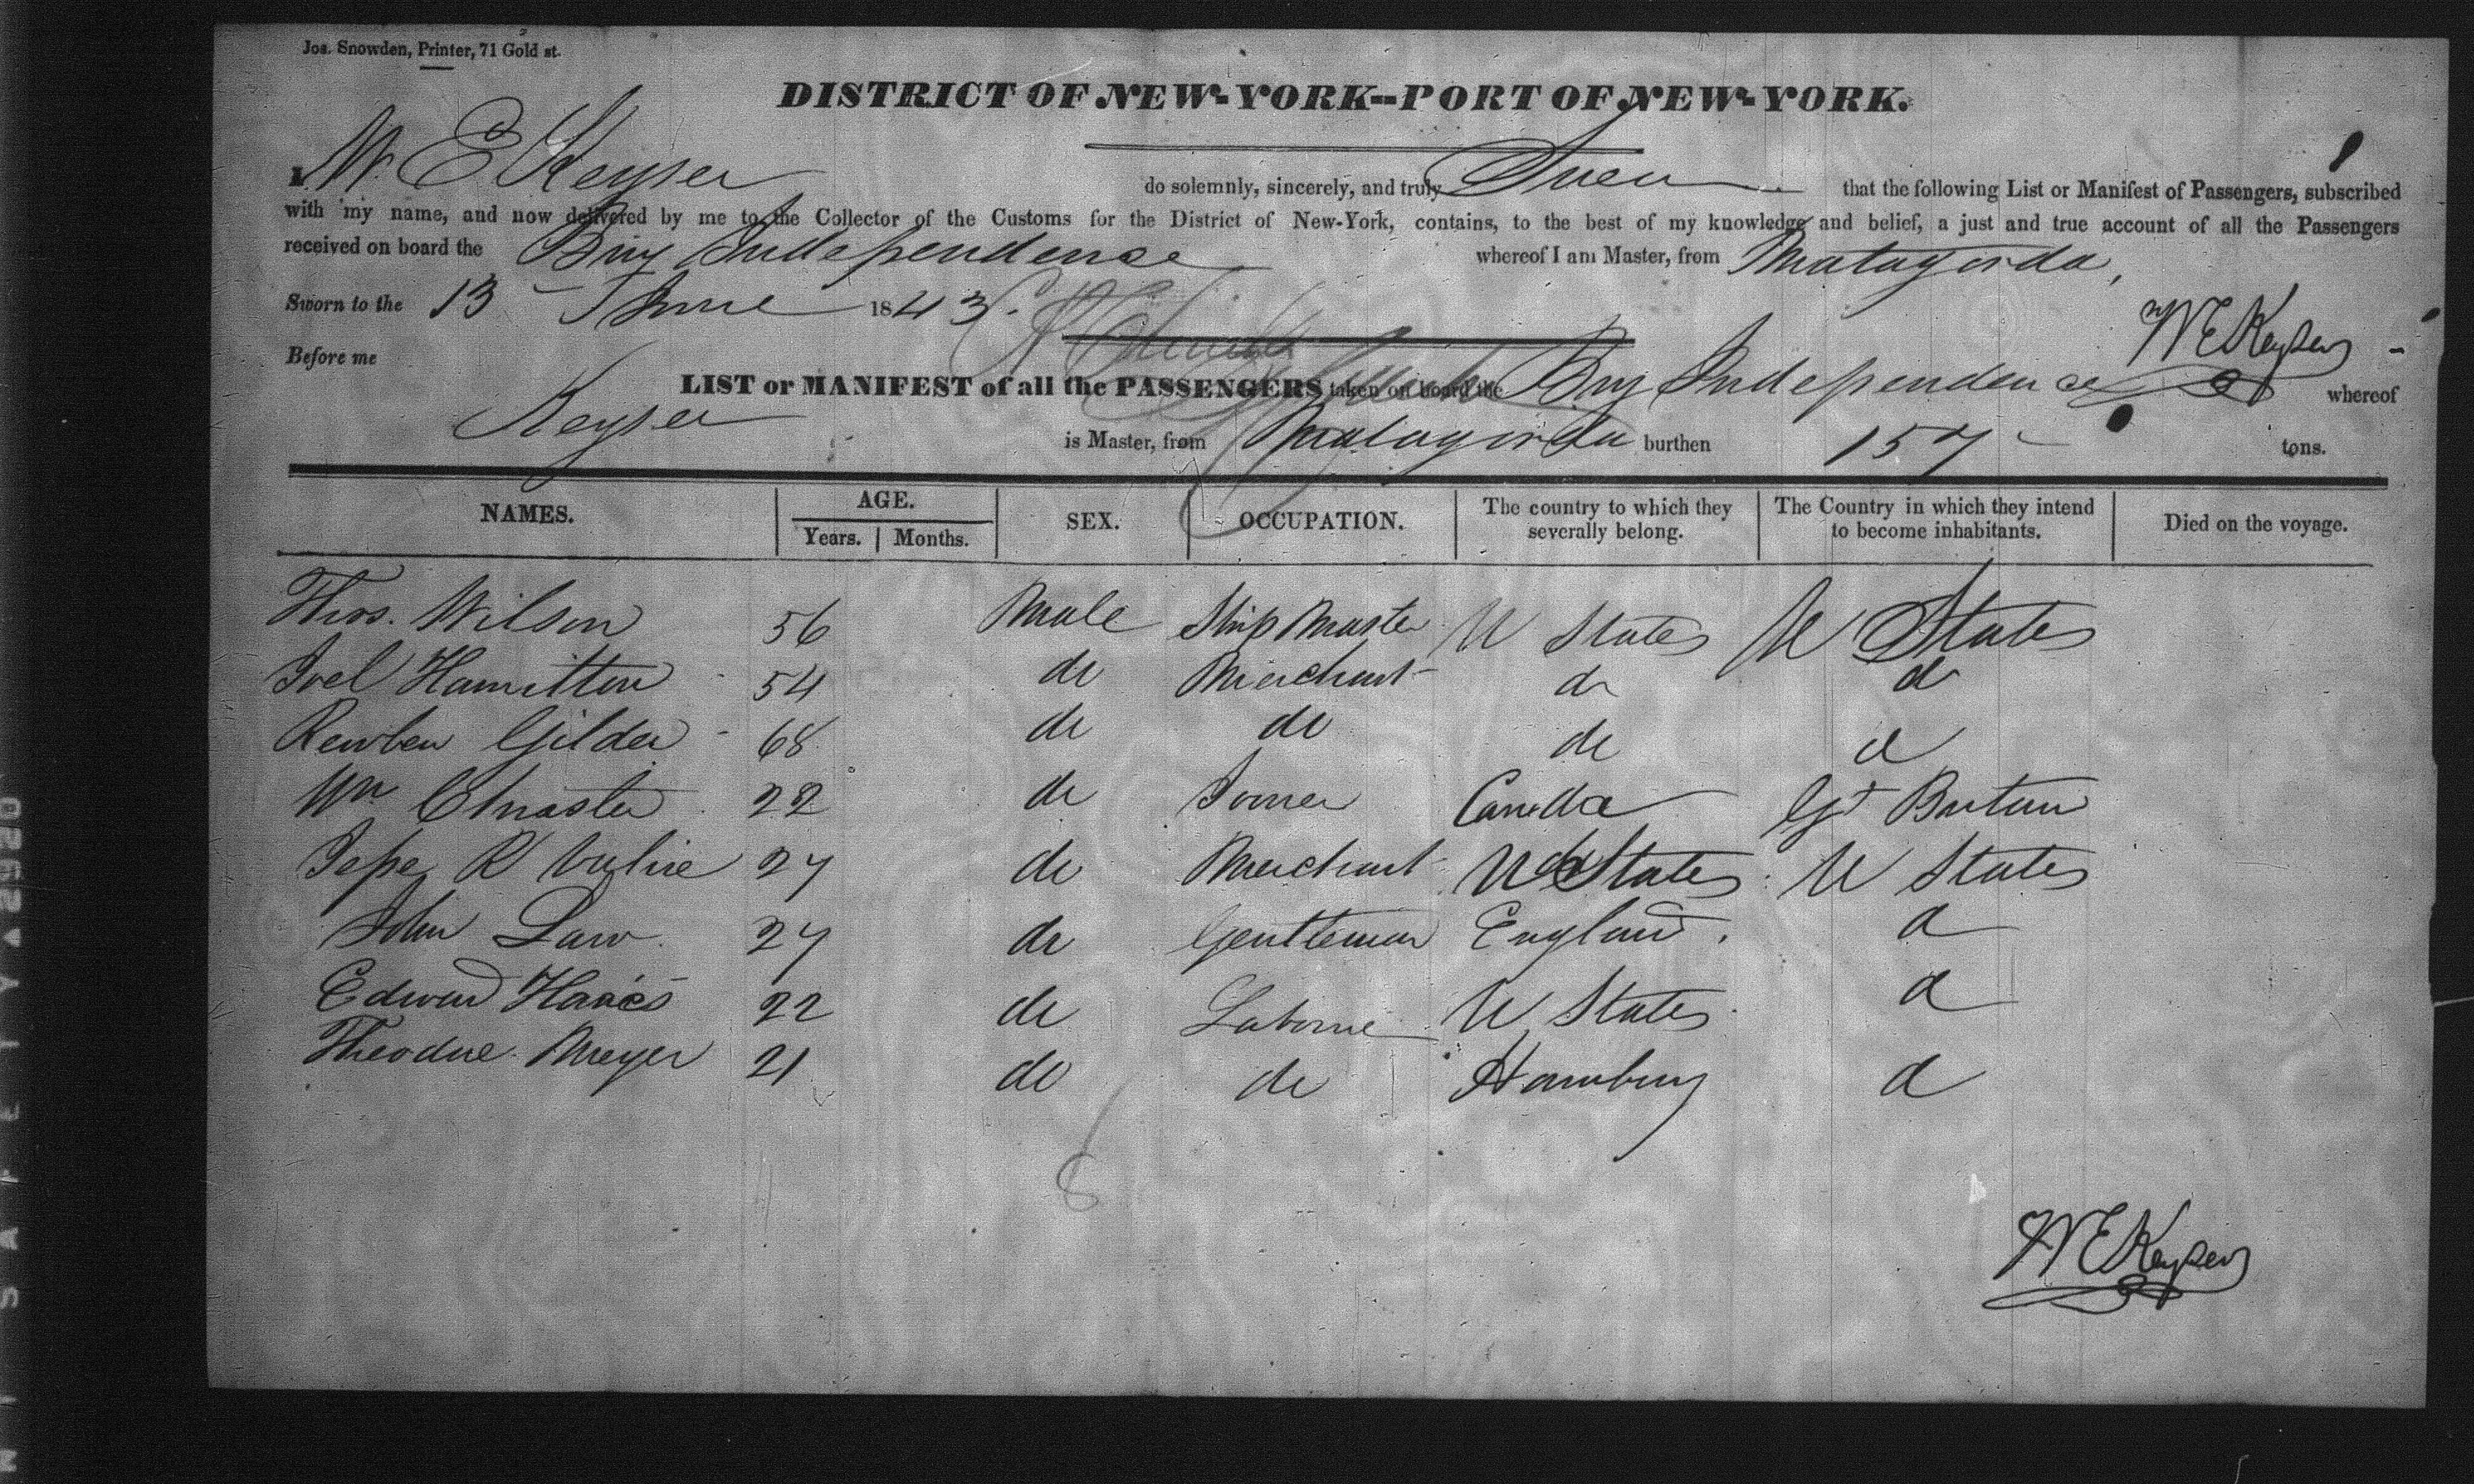 Jos. Snowden, Printer, 71 Gold st.
DISTRICT OF NEW-YORK--PORT OF NEW-YORK.
I, W. E Keyser do solemnly, sincerely, and truly Swear that the following List or Manifest of Passengers, subscribed
with my name, and now delivered by me to the Collector of the Customs for the District of New-York, contains, to the best of my knowledge and belief, a just and true account of all the Passengers
received on board the Brig Independence whereof I am Master, from Matagorda,
Sworn to the 13 June 1843.
W E Keyser
Before me
LIST or MANIFEST of all the PASSENGERS taken on board the Brig Independence whereof
Keyser is Master, from Matagorda burthen 157 tons.
NAMES. AGE. Years. Months. SEX. OCCUPATION. The country to which they severally belong. The Country in which they intend to become inhabitants. Died on the voyage.
Thos. Wilson 56 Male Ship Master U States U States
Joel Hamilton 54 do Merchant do d
Reuben Gilder 68 do do do d
Wm 22 do Joiner Canada Gt Britain
R 27 do Merchant U States U States
John Law 27 do Gentleman England. d
Edward Haaes 22 do Laborer U States d
Theodore Meyer 21 do do Hamburg d
8
W E Keyser